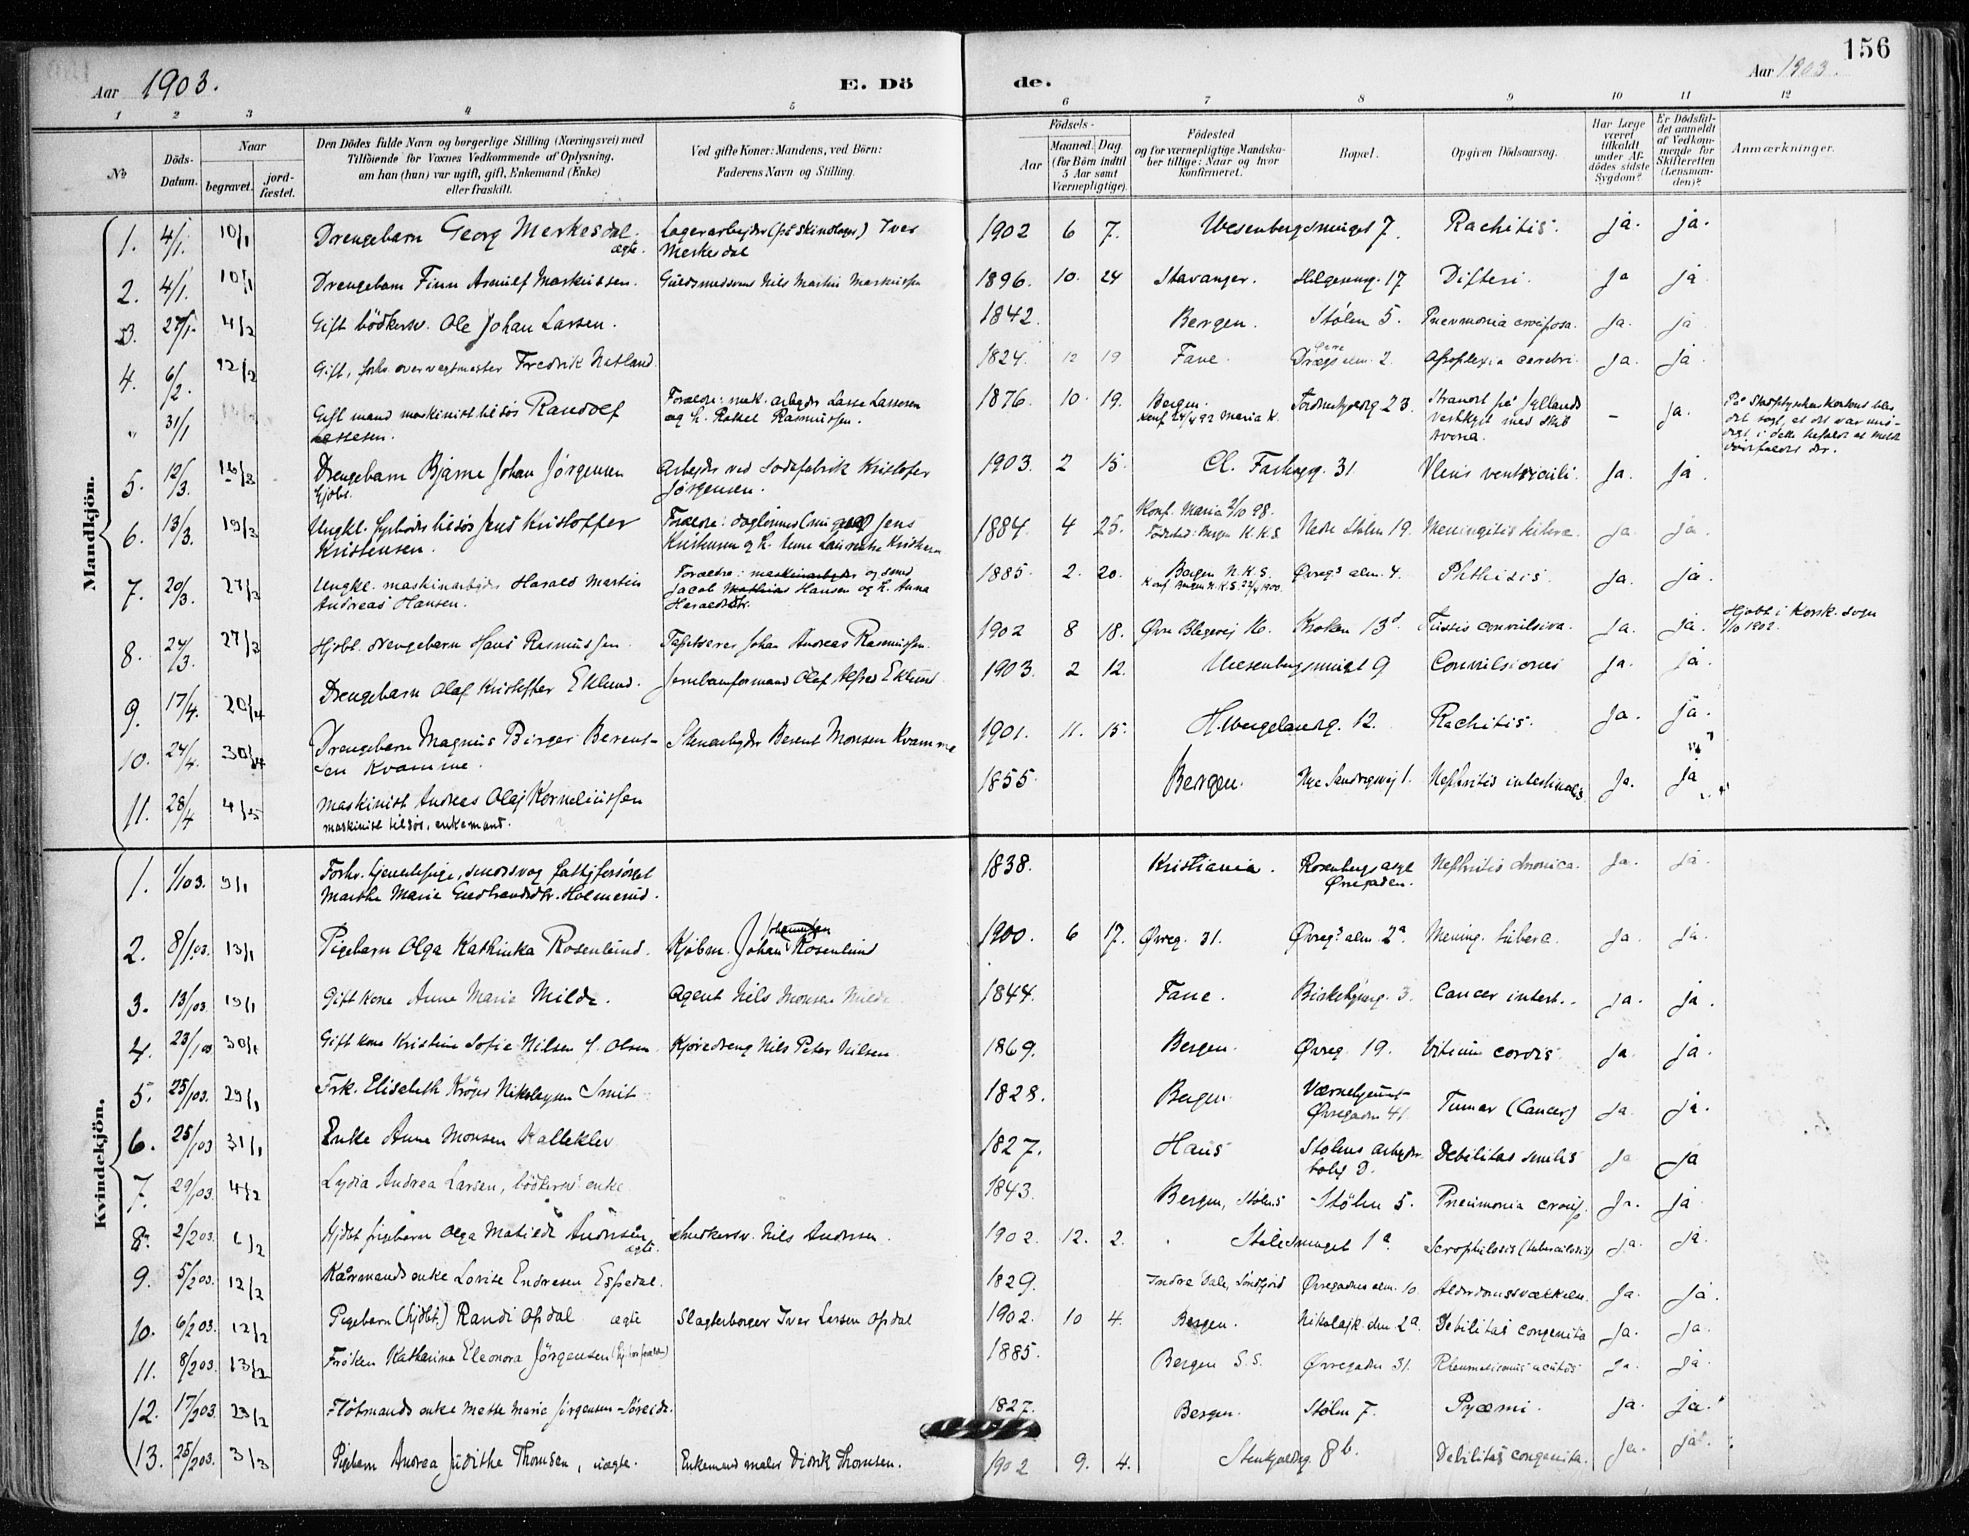 156
Aar 1903. E. Dö de. Aar 1903.
1 2 3 4 5 6 7 8 9 10 11 12
No
Döds-Datum.
Naar
begravet.
jord-fæstet.
Den Dödes fulde Navn og borgerlige Stilling (Næringsvei) med
Tilföiende for Voxnes Vedkommende af Oplysning,
om han (hun) var ugift, gift, Enkemand (Enke)
eller fraskilt.
Ved gifte Koner: Mandens, ved Börn:
Faderens Navn og Stilling.
Födsels-
Aar
Maaned. Dag.
(for Börn indtil
5 Aar samt
Værnepligtige).
Födested
og for værnepligtige Mandska-
ber tillige: Naar og hvor
konfirmeret.
Bopæl.
Opgiven Dödsaarsag.
Har Læge
været
tilkaldt
under Af-
dödes sidste
Sygdom?
Er Dödsfal-
det anmeldt
af Vedkom-
mende for
Skifteretten
(Lensman-
den)?
Anmærkninger.
Mandkjön.
1. 4/1. 10/1 Drengebarn Georg Merkesdal. ægte. Lagerarbejder (på skindlager) Iver Merkesdal 1902 6 7. Wesenbergsmuget 7. Rachitis. ja. ja.
2. 4/1. 10/1 Drengebarn Finn Arnulf Markussen. Guldsmedsvend Nils Martin Markussen 1896. 10. 24 Stavanger. Helgesensg. 17 Difteri. Ja ja
3. 27/1. 4/2 Gift bödkersv. Ole Johan Larsen. 1842. Bergen. Stølen 5. Pneumonia crouposa. Ja. ja
4. 6/2. 12/2 Gift, forhv. overvægtmester Fredrik Natland 1824. 12 19 Fane. Øvre Drægs alm. 2. Apoplexia cerebri. Ja. ja.
" 31/1 Gift mand maskinist tilsös Randolf Lassesen. Forældre: mask. arbejder Lasse Lassesen og h. Rakel Rasmussen. 1876. 10. 19. Bergen. Konf. 24/4 92 Maria K. 23. Strandt på Jyllands vestkyst med skib – ja.
5. 12/3. 16/3 Drengebarn Bjarne Johan Jørgensen hjdöbt. Arbejder ved sodafabrik Kristofer Jørgensen. 1903. 2 15. 31. Ulcus ventriculi. Ja. ja
6. 13/3. 19/3 Ungkl. fyrböder tilsös Jens Kristoffer Kristensen. Forældre: Jens Kristensen og h. Anne Kristensen 1884 4 25. Konf. Maria 2/10 98. Födested: Bergen K.K.S. Nedre Stølen 19. Meningitis tuberc. ja. ja.
7. 20/3. 27/3 Ungkl. maskinarbejder Harald Martin Andreas Hansen. Forældre: maskinarbejder og smed Jacob Mathias Hansen og h. Anna Haraldsdtr. 1885. 2. 20. Bergen N.K.S. Konf. Bergen N.K.S. 22/4 1900. Øvregs alm. 4. Phthisis. ja. ja.
8. 24/3. 27/3 Hjdbt. drengebarn Hans Rasmussen. Tapetserer Johan Andreas Rasmussen. 1902 8 18. Øvre Blegevej 16. Kroken 13d. Tussis convulsiva. Ja. ja. Hjdbt i Korsk. sogn 1/10 1902.
9. 17/4. 20/4 Drengebarn Olaf Kristoffer Eklund. Jernbaneformand Olof Alfred Eklund 1903. 2 12. Wesenbergsmuget 9 Convulsiones Ja. ja.
10. 24/4. 30/4 Drengebarn Magnus Birger Berent-sen Kvamme. Stenarbejder Berent Monsen Kvamme 1901. 11. 15. H. Wergelandsg. 12. Rachitis. Ja. ja.
11. 28/4 4/5 Maskinist Andreas Olaj Korneliussen maskinist tilsös, enkemand. 1855. Bergen. Nye Sandvigsvej 1. Nephritis intestinalis Ja. ja
Kvindekjön.
1. 1/1 03. 9/1 Forhv. tjenestepige, sindssvag fattigforsörget Marthe Marie Gudbrandsdtr. Holmerud. 1838. Kristiania. Rosenbergs asyl Øvregaden. Nephritis chronica. Ja. ja.
2. 8/1 03. 13/1 Pigebarn Olga Kathinka Rosenlund. Kjöbm. Johan Johannessen Rosenlund 1900. 6 17. Øvreg. 31. Øvregs alm. 2a. Mening. tuberc. ja. ja.
3. 13/1 03. 19/1 Gift kone Anne Marie Milde. Agent Nils Monsen Milde 1844. Fane. Birkebejnerg. 3. Cancer intest.. ja. ja.
4. 23/1 03 30/1 Gift kone Kristine Sofie Nilsen f. Olsen. Kjøredreng Nils Peter Nilsen. 1869. Bergen. Øvreg. 19. Vitium cordis. ja. ja.
5. 25/1 03. 29/1 Frk. Elisabeth Kröger Nikolaysen Smit 1828. Bergen Værnehjemmet Øvregaden 41. Tumor (Cancer) ja. ja.
6. 25/1 03 31/1 Enke Anna Monsen Kalleklev 1827. Haus Stølens arbejder bolig D. Debilitas senilis ja ja
7. 29/1 03. 4/2 Lydia Andrea Larsen, bödkersv. enke 1843. Bergen, Stølen 5 Stølen 5. Pneumonia croup. Ja. ja
8. 2/2 03. 6/2 Hjdbt pigebarn Olga Matilde Andresen ægte. Snedkersv. Nils Andresen. 1902. 12. 2. Stølesmuget 1a. Scrophulosis (tuberculosis) Ja. ja.
9. 5/2 03. 12/2 Kårmands enke Lovise Endresen Espedal. 1829. Indre Dale, Søndfjord Øvregadens alm. 10. Alderdomssvækkelse. Ja. ja.
10. 6/2 03. 12/2 Pigebarn (hjdbt.) Randi Opdal ægte Slagterborger Iver Larsen Opdal 1902. 10 4. Bergen. Nikolajk. alm 2a. Debilitas congenita Ja. ja.
11. 8/2 03. 13/2 Fröken Katharina Eleonora Jörgensen 1885. Bergen S.S. Øvregaden 31. Rheumatismus acutus ja. ja.
12. 17/2 03. 23/2 Fløtmands enke Mette Marie Jörgensen-Søreide. 1827. Bergen. Stølen 7. Pyæmi. ja. ja.
13. 25/2 03. 3/3 Pigebarn Andrea Judithe Thomsen, uægte. Enkemand maler Didrik Thomsen. 1902 9. 4. Stenkjelderg. 8b. Debilitas congenita. Ja. ja.